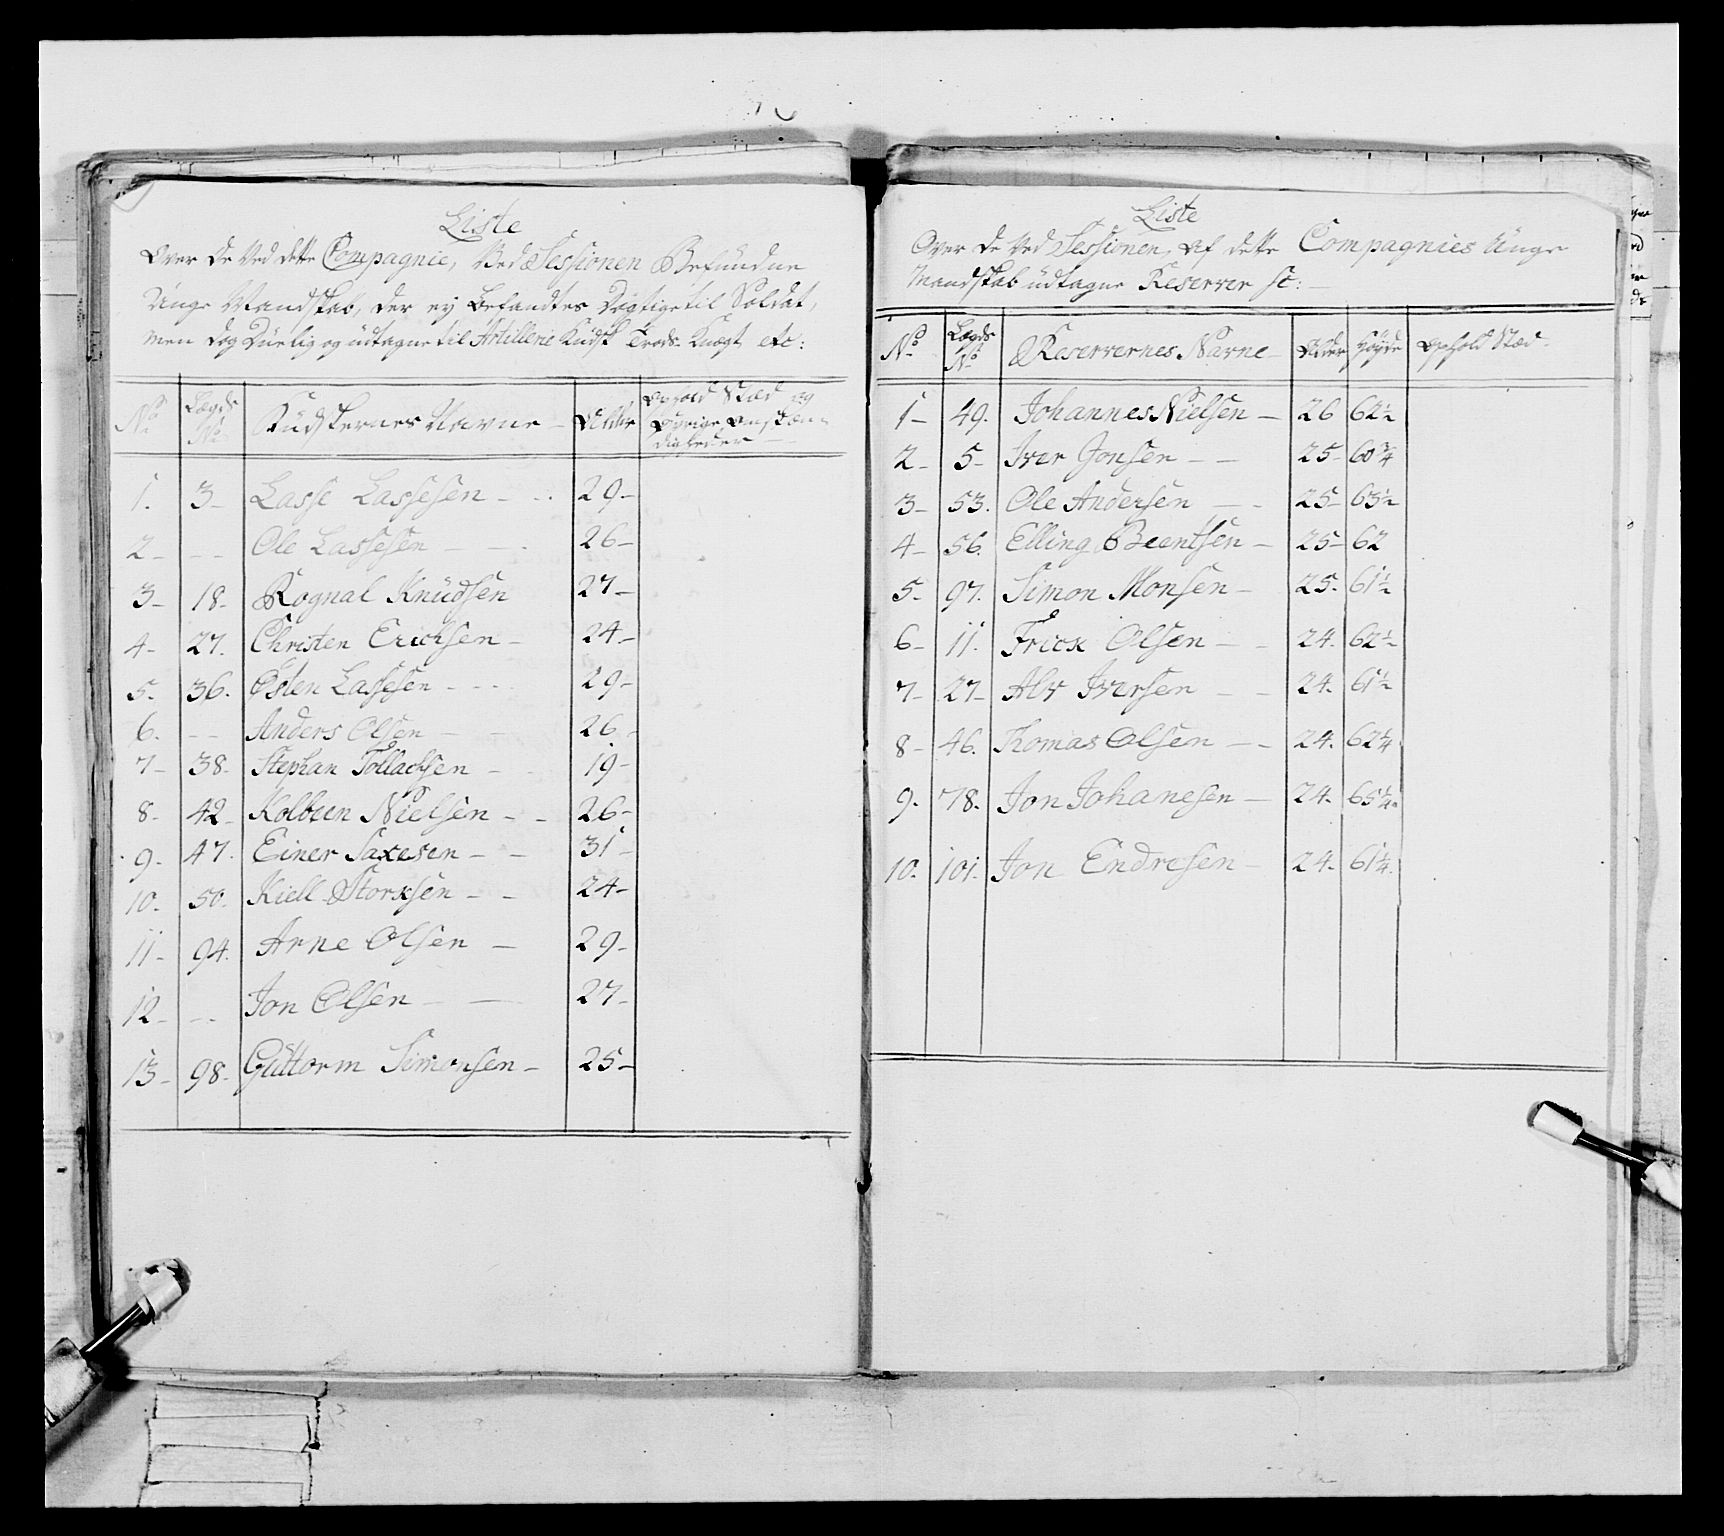 Liste
Over de ved dette Compagnie, ved Sessionen Befundne
Unge Mandskab, der ey befandtes dygtige til Soldat,
men dog duelig og udtagne til Artillerie Kudsk Trods. Knegt etc:
No Lægds No Kudskernes Navne Alder Ophold Stæd og
øvrige omstæn-
digheder
1. 3 Lasse Lassesen 29
2 Ole Lassesen 26
3 18 Rognal Knudsen 27
4 27. Christen Erichsen 24
5. 36. Østen Lassesen 29
6. Anders Olsen 26
7 38. Stephan Tollachsen 19
8. 42 Kolbeen Nielsen 26
9. 47. Einer Saxesen 31
10. 50. Kiell Storksen 24
11 94. Arne Olsen 29
12 Jon Olsen 27
13 98. Guttorm Simonsen 25
Liste
Over de ved Sessionen, af dette Compagnies Unge
Mandskab udtagne Reserver
No Lægds No Reservernes Navne Alder Høyde Ophold Stæd
1 49. Johannes Nielsen 26 62½
2 5 Iver Jonsen 25 60¾
3 53. Ole Andersen 25 63½
4 56. Elling Beentsen 25 62
5. 97. Simon Monsen 25. 61½
6 11. Frick Olsen 24. 62½
7 27 Alv Iversen 24. 61½
8 46. Thomas Olsen 24. 62¼
9. 78. Jon Johanesen 24. 65¼
10. 101. Jon Endresen 24. 61¼